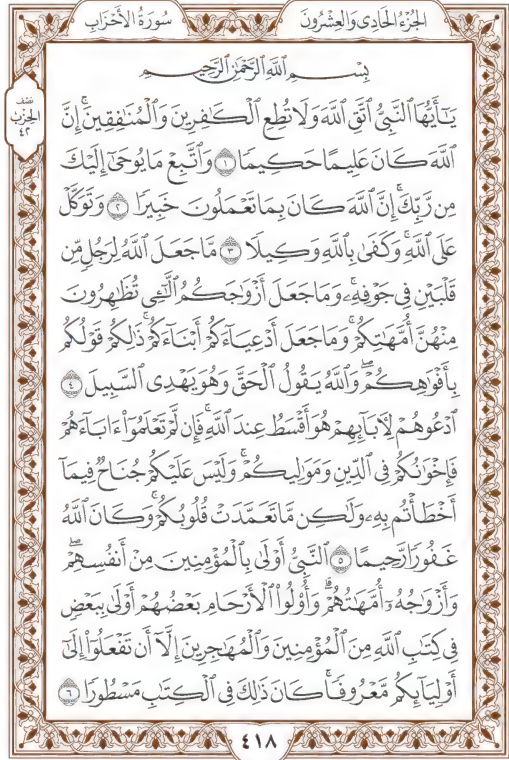 الجُزْءُ الحَادِي وَالعِشْرُونَ
سُورَةُ الأَحْزَابِ
نصف
الحزب
٤٢
بِسْمِ اللَّهِ الرَّحْمَٰنِ الرَّحِيمِ
يَـٰٓأَيُّهَا ٱلنَّبِىُّ ٱتَّقِ ٱللَّهَ وَلَا تُطِعِ ٱلْكَـٰفِرِينَ وَٱلْمُنَـٰفِقِينَ ۗ إِنَّ
ٱللَّهَ كَانَ عَلِيمًا حَكِيمًا ١ وَٱتَّبِعْ مَا يُوحَىٰٓ إِلَيْكَ
مِن رَّبِّكَ ۚ إِنَّ ٱللَّهَ كَانَ بِمَا تَعْمَلُونَ خَبِيرًا ٢ وَتَوَكَّلْ
عَلَى ٱللَّهِ ۚ وَكَفَىٰ بِٱللَّهِ وَكِيلًا ٣ مَّا جَعَلَ ٱللَّهُ لِرَجُلٍ مِّن
قَلْبَيْنِ فِى جَوْفِهِۦ ۚ وَمَا جَعَلَ أَزْوَٰجَكُمُ ٱلَّـٰٓـِٔى تُظَـٰهِرُونَ
مِنْهُنَّ أُمَّهَـٰتِكُمْ ۚ وَمَا جَعَلَ أَدْعِيَآءَكُمْ أَبْنَآءَكُمْ ۚ ذَٰلِكُمْ قَوْلُكُم
بِأَفْوَٰهِكُمْ ۖ وَٱللَّهُ يَقُولُ ٱلْحَقَّ وَهُوَ يَهْدِى ٱلسَّبِيلَ ٤
ٱدْعُوهُمْ لِـَٔابَآئِهِمْ هُوَ أَقْسَطُ عِندَ ٱللَّهِ ۚ فَإِن لَّمْ تَعْلَمُوٓا۟ ءَابَآءَهُمْ
فَإِخْوَٰنُكُمْ فِى ٱلدِّينِ وَمَوَٰلِيكُمْ ۚ وَلَيْسَ عَلَيْكُمْ جُنَاحٌ فِيمَآ
أَخْطَأْتُم بِهِۦ وَلَـٰكِن مَّا تَعَمَّدَتْ قُلُوبُكُمْ ۚ وَكَانَ ٱللَّهُ
غَفُورًا رَّحِيمًا ٥ ٱلنَّبِىُّ أَوْلَىٰ بِٱلْمُؤْمِنِينَ مِنْ أَنفُسِهِمْ ۖ
وَأَزْوَٰجُهُۥٓ أُمَّهَـٰتُهُمْ ۗ وَأُو۟لُوا۟ ٱلْأَرْحَامِ بَعْضُهُمْ أَوْلَىٰ بِبَعْضٍ
فِى كِتَـٰبِ ٱللَّهِ مِنَ ٱلْمُؤْمِنِينَ وَٱلْمُهَـٰجِرِينَ إِلَّآ أَن تَفْعَلُوٓا۟ إِلَىٰٓ
أَوْلِيَآئِكُم مَّعْرُوفًا ۚ كَانَ ذَٰلِكَ فِى ٱلْكِتَـٰبِ مَسْطُورًا ٦
٤١٨